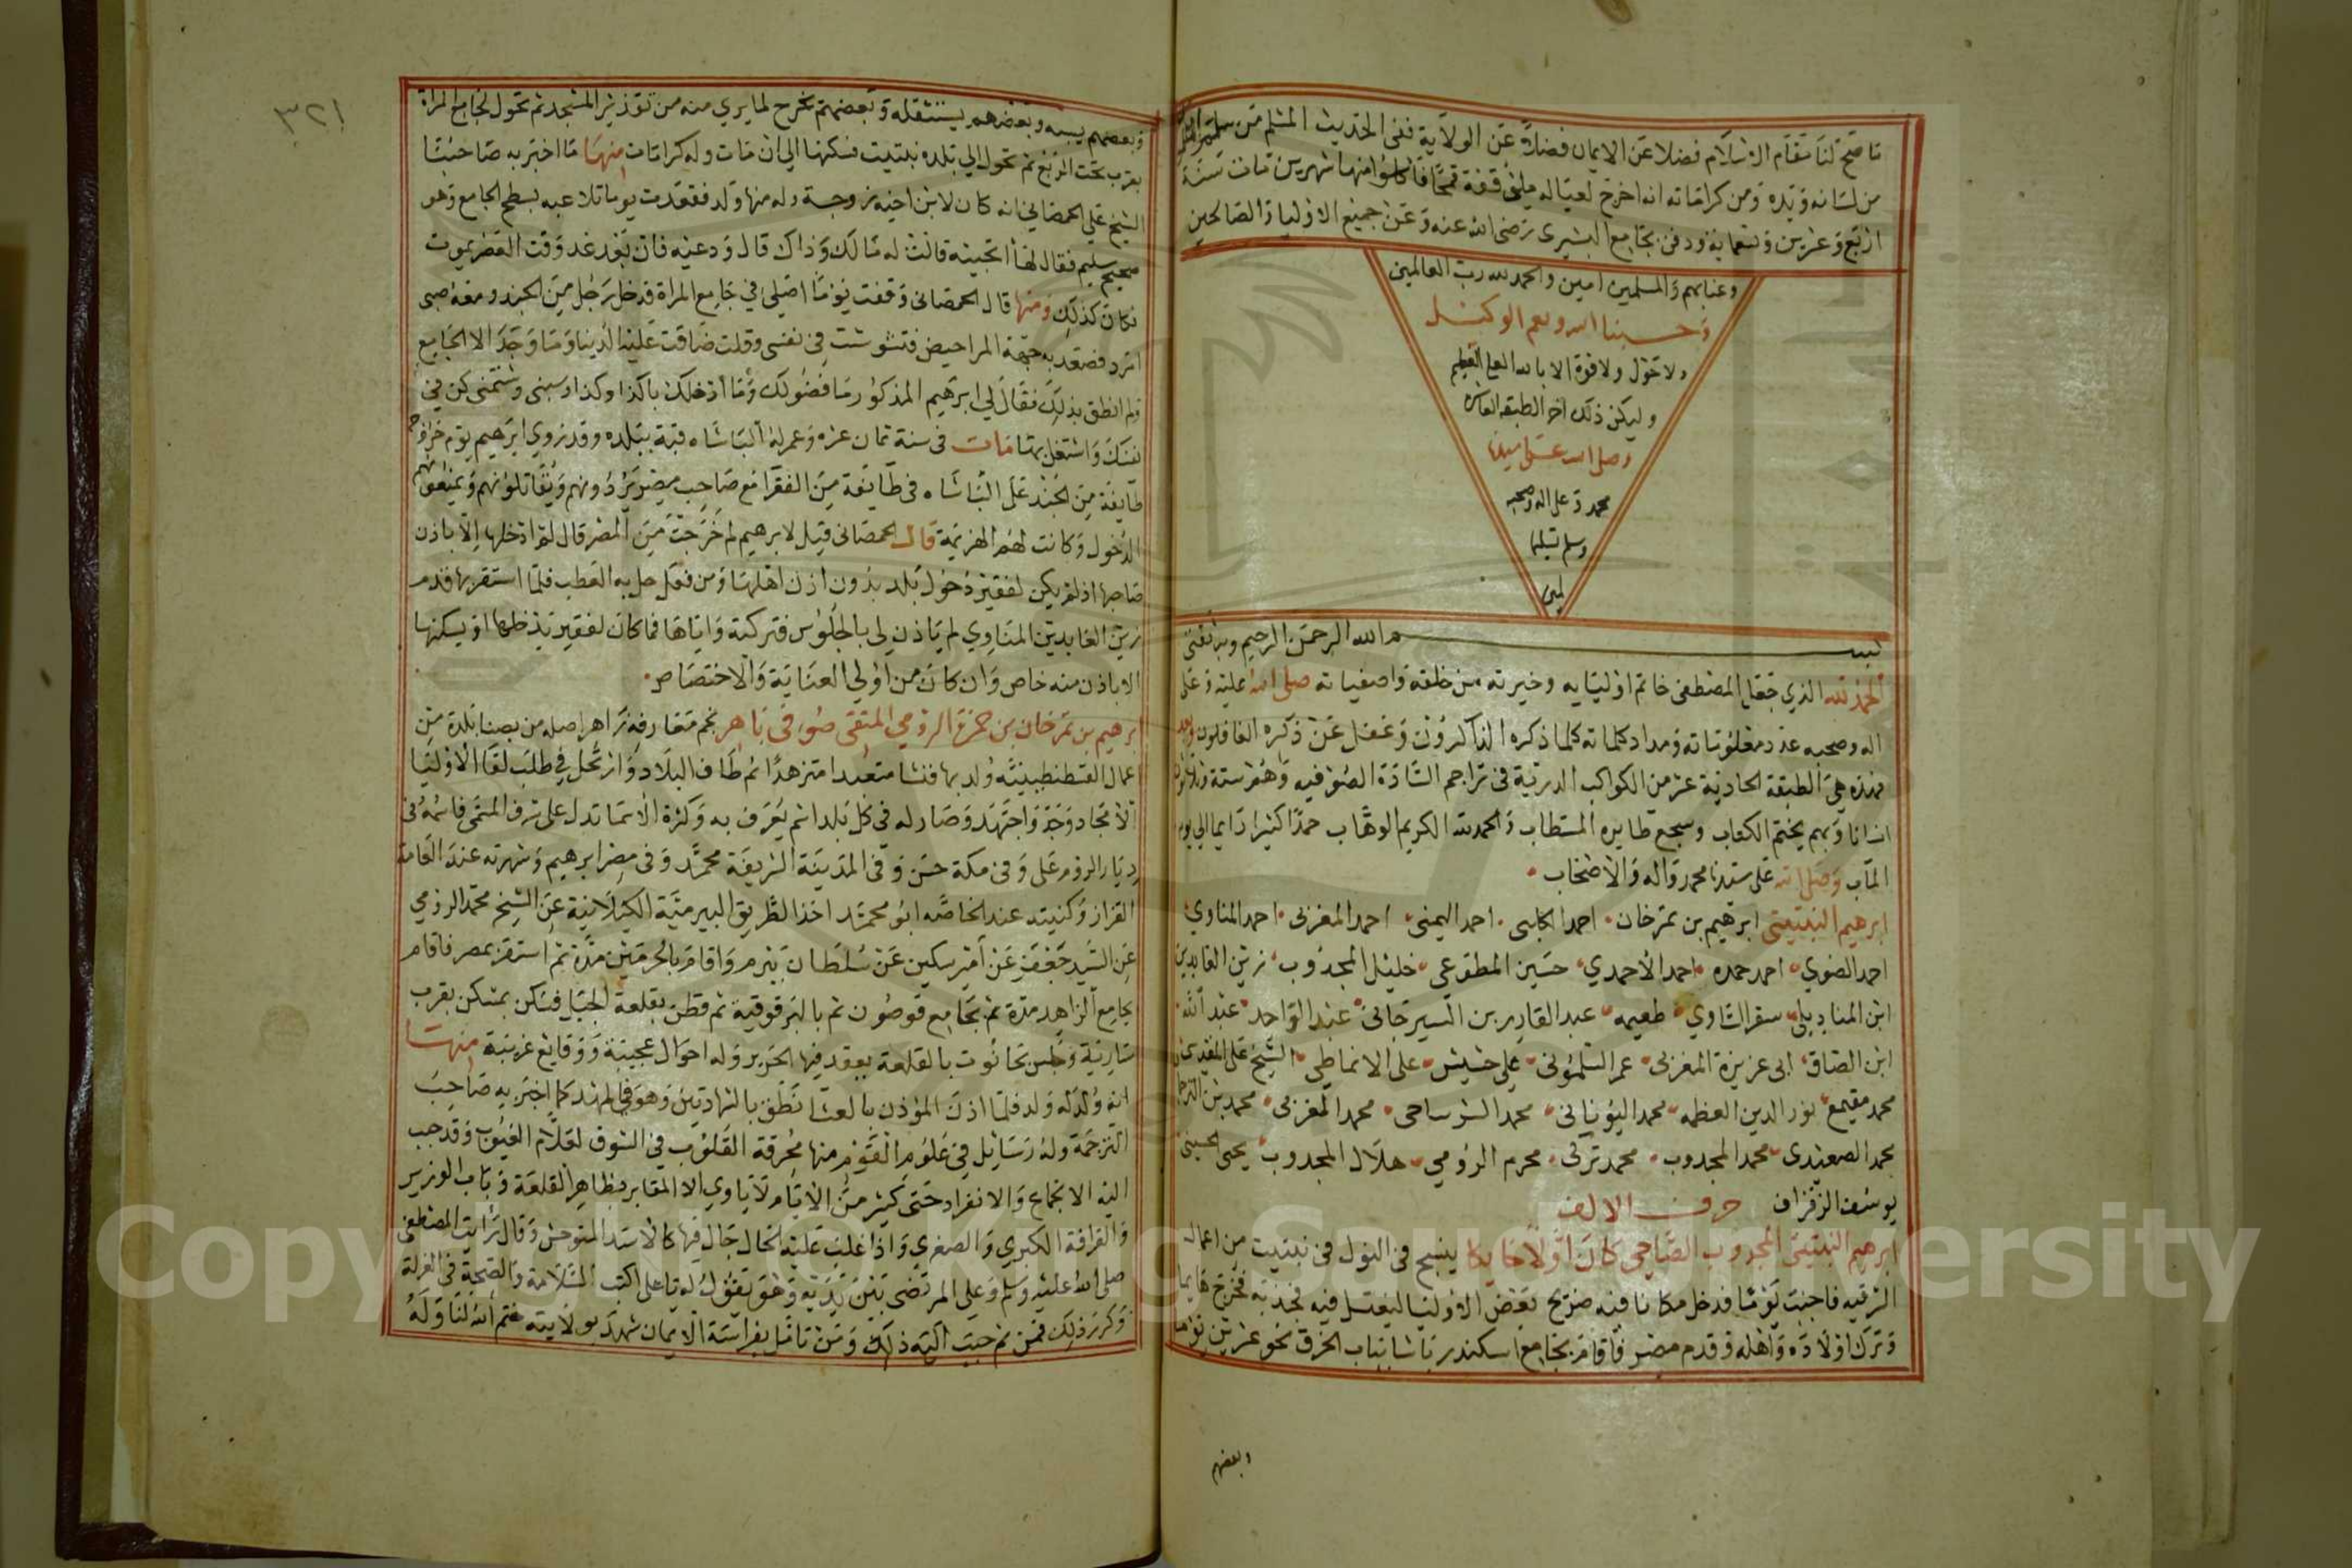 ما صح لنا مقام الاسلام فضلا عن الايمان فضلا عن الولاية ففى الحديث المسلم من سلم
من لسانه ويده ومن كراماته انه اخرج لعياله قفة قمحا فاكلوا منها شهرين مات سنة
اربع وعشرين وتسعماية ودفن بجامع البشيرى رضى الله عنه وعن جميع الاوليا والصالحين
وعنابهم والمسلمين امين والحمد لله رب العالمين
وحسبنا الله ونعم الوكيل
ولا حول ولا قوة الا بالله العلى العظيم
وليكن ذلك اخر الطبقه العاشره
وصلى الله على سيدنا
محمد وعلى اله وصحبه
وسلم تسليما
بسم الله الرحمن الرحيم وبه ثقتى
الحمد لله الذي جعل المصطفى خاتم اوليايه وخيرته من خلقه واصفيايه صلى الله عليه وعلى
اله وصحبه عدد معلوماته ومداد كلماته كلما ذكره الذاكرون وغفل عن ذكره الغافلون
فهذه هى الطبقة الحادية عشر من الكواكب الدرية فى تراجم السادة الصوفيه وهم ستة وثلاثون
انسانا وبهم يختم الكتاب وسجع طايره المستطاب والحمد لله الكريم الوهاب حمدا كثيرا دايما الى يوم
المآب وصلى الله على سيدنا محمد واله والاصحاب
ابرهيم النبتيتى ابرهيم بن تمرخان احمد الكلبى احمد اليمنى احمد المغربى احمد المناوي
احمد الضوي احمد حمده احمد الاحمدي حسين المطوعى خليل المجذوب زين العابدين
ابن المناديلى سقر الشاوي طعيمه عبد القادر بن السيرجانى عبد الواحد عبد الله
ابن الصاق ابى عزيزة المغربى عمر السلمونى على حشيش على الانماطي الشيخ على المقدسى
محمد مقيمع نور الدين العظمه محمد اليونانى محمد الشرساحى محمد المغربى محمد بن الترجمان
محمد الصعيدى محمد المجدوب محمد تركى محرم الرومي هلال المجدوب يحيى الحسينى
يوسف الزفزاف حرف الالف
ابرهيم النبتيتى المجدوب الصاحى كان اولا حايكا ينسج فى النول فى نبتيت من اعمال
الشرقيه فاجنب يوما فدخل مكانا فيه ضريح بعض الاوليا ليغتسل فيه فجذبه فخرج هايما
وترك اولاده واهله وقدم مصر فاقام بجامع اسكندر باشا بباب الخرق نحو عشرين يوما
وبعضهم
٣٢١
وبعضهم يسبه وبعضهم يستثقله وبعضهم يخرج لما يري منه من تقذير المسجد ثم تحول لجامع المراة
بقرب تحت الربع ثم تحول الي بلده نبتيت فسكنها الي ان مات وله كرامات منها ما اخبر به صاحبنا
الشيخ على الحمصانى انه كان لابن اخيه زوجة وله منها ولد فقعدت يوما تلاعبه بسطح الجامع وهو
صحيح سليم فقال لها اتحبينه قالت له مالك وذاك قال ودعيه فان بعد غد وقت العصر يموت
فكان كذلك ومنها قال الحمصانى وقفت يوما اصلى في جامع المراة فدخل رجل من الجند ومعه صبى
امرد فصعد به جهة المراحيض فتشوشت فى نفسى وقلت ضاقت عليه الدنيا وما وجد الا الجامع
ولم انطق بذلك فقال لى ابرهيم المذكور ما فضولك وما ادخلك يا كذا وكذا وسبنى وشتمنى كن فى
نفسك واشتغل بها مات فى سنة ثمان عشره وعمر له الباشاه قبة ببلده وقد روي ابرهيم يوم خروج
طايفة من الجند على الباشاه فى طايفة من الفقرا مع صاحب مصر يردونهم ويقاتلونهم ويمنعونهم
الدخول وكانت لهم الهزيمة قال الحمصانى قيل لابرهيم لم خرجت من المصر قال لم ادخلها الا باذن
صاحبها اذ لم يكن لفقير دخول بلد بدون اذن اهلها ومن فعل حل به العطب فلما استقر بها قدم
زين العابدين المناوي لم ياذن لى بالجلوس فتركته واياها فما كان لفقير يدخلها او يسكنها
الا باذن منه خاص وان كان من اولي العناية والاختصاص
ابرهيم بن تمرخان بن حمزة الرومي المتقى صوفى باهر نجم معارفه زاهر اصله من بصنا بلدة من
اعمال القسطنطينيه ولد بها فنشا متعبدا متزهدا ثم طاف البلاد وارتحل في طلب لقا الاوليا
الامجاد وجد واجتهد وصار له فى كل بلد اسم يعرف به وكثرة الاسما تدل على شرف المسمى فاسمه فى
ديار الروم على وفى مكة حسن وفى المدينة الشريفة محمد وفى مصر ابرهيم وشهرته عند العامة
القزاز وكنيته عند الخاصه ابو محمد اخذ الطريق البيرمية الكيلانية عن الشيخ محمد الرومي
عن السيد جعفر عن امير سكين عن سلطان بيرم واقام بالحرمين مدة ثم استقر بمصر فاقام
بجامع الزاهد مدة ثم بجامع قوصون ثم بالبرقوقية ثم قطن بقلعة الجبل فسكن بمسكن بقرب
سارية وجلس بحانوت بالقلعة يعقد فيها الحرير وله احوال عجيبة ووقايع غريبة منها
انه ولد له ولد فلما اذن المؤذن بالعشا نطق بالشهادتين وهو في المهد كما اخبر به صاحب
الترجمة وله رسايل فى علوم القوم منها محرقة القلوب فى الشوق لعلام الغيوب وقد حبب
اليه الانجماع والانفراد حتى كثير من الايام لا ياوي الا المقابر بظاهر القلعة وباب الوزير
والقرافة الكبري والصغري واذا غلب عليه الحال جال فيها كالاسد المتوحش وقال رايت المصطفى
صلى الله عليه وسلم وعلى المرتضى بين يديه وهو يقول له يا على اكتب السلامة والصحة فى العزلة
وكرر ذلك فمن ثم حبب اليه ذلك ومن تامل بفراسة الايمان شهد بولايته ختم الله لنا وله
Copyright © King Saud University